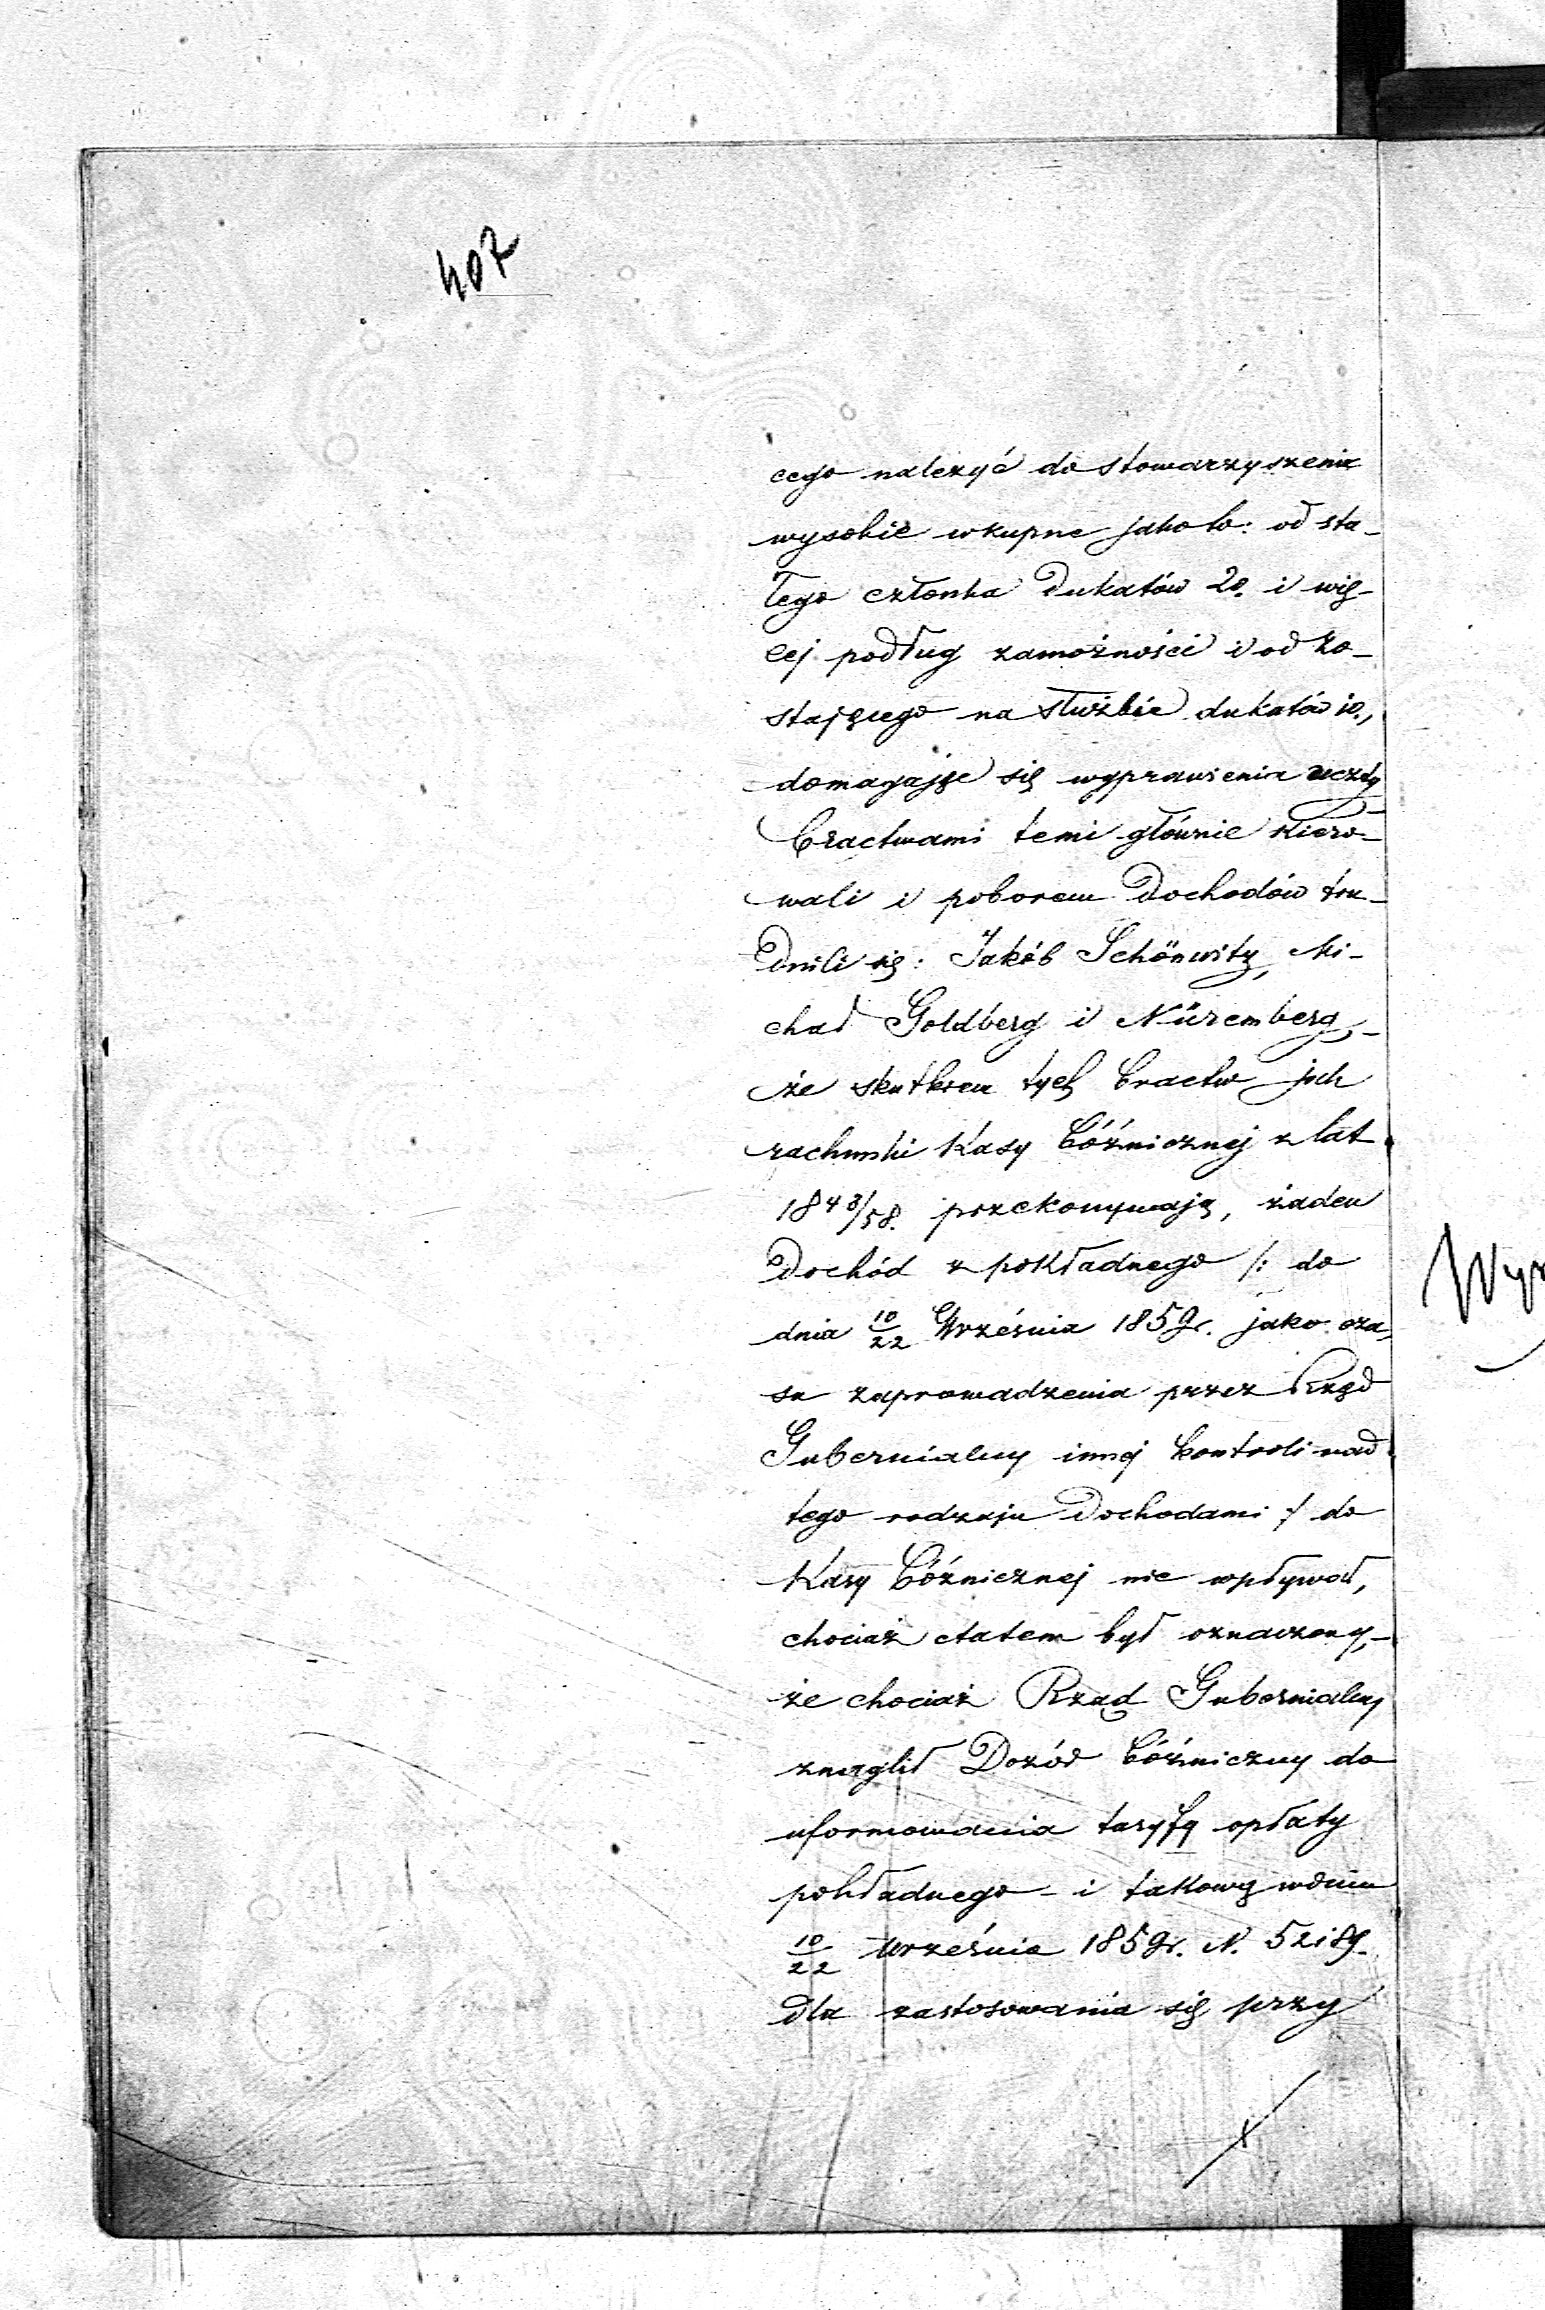 407
cego należyć do stowarzyszenia
wysokie wkupne jako to: od sta-
łego członka Dukatów 20. i wię-
cej podług zamożności i od zo-
stającego na służbie dukatów 10.,
domagając się wyprawienia uczty
Bractwami temi głównie kiero-
wali i poborem Dochodów tru-
dnili się: Jakób Schönwitz, Mi-
chał Goldberg i Nüremberg,-
że skutkiem tych bractw jak
rachunki Kasy bóźnicznej z lat
1848/58. przekonywają, żaden
Dochód z pokładnego /: do
dnia 10/22 Września 1859r. jako cza-
su zaprowadzenia przez Rząd
Gubernialny innej kontroli nad
tego rodzaju Dochodami :/ do
Kasy Bóźnicznej nie wpływał,
chociaż etatem był oznaczony,-
że chociaż Rząd Gubernialny
znaglił Dozór bóźniczny do
uformowania taryfy opłaty
pokładnego - i takową w dniu
10/22 Września 1859r. N. 52189.
dla zastosowania się przy